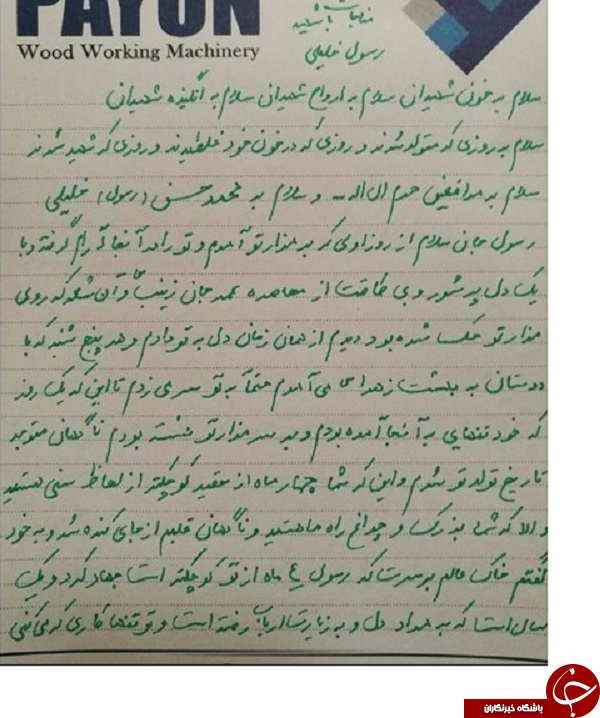 PAYON
Wood Working Machinery
رسول خلیلی
سلام به خون شهیدان سلام به ارواح شهیدان سلام به انگیزه شهیدان
سلام به روزی که متولد شدند و روزی که در خون خود غلطیدند و روزی که شهید شدند
سلام به مدافعین حرم ال الله و سلام به محمد حسن (رسول) خلیلی
رسول جان سلام از روز اولی که بر مزار تو آمدم و تو را در آنجا آرام گرفته و با
یک دل پر شور و بی طاقت از محاصره عمه جان زینب و آن شعر که روی
مزار تو حک شده بود دیدم از همان زمان دل به تو دادم و هر پنج شنبه که با
دوستان به بهشت زهرا می آمدم حتماً به تو سر می زدم تا این که یک روز
که خود تنهایی به آنجا آمده بودم و بر سر مزار تو نشسته بودم ناگهان متوجه
تاریخ تولد تو شدم و این که شما چهار ماه از حقیر کوچکتر از لحاظ سنی هستید
و الا که شما بزرگ و چراغ راه ما هستید و ناگهان قلبم از جای کنده شد و به خود
گفتم خاک عالم بر سرت که رسول ۴ ماه از تو کوچکتر است جهاد کرد و یک
سال است که به مراد دل و به زیارت ارباب رفته است و تو تنها کاری که می کنی
باشگاه خبرنگاران